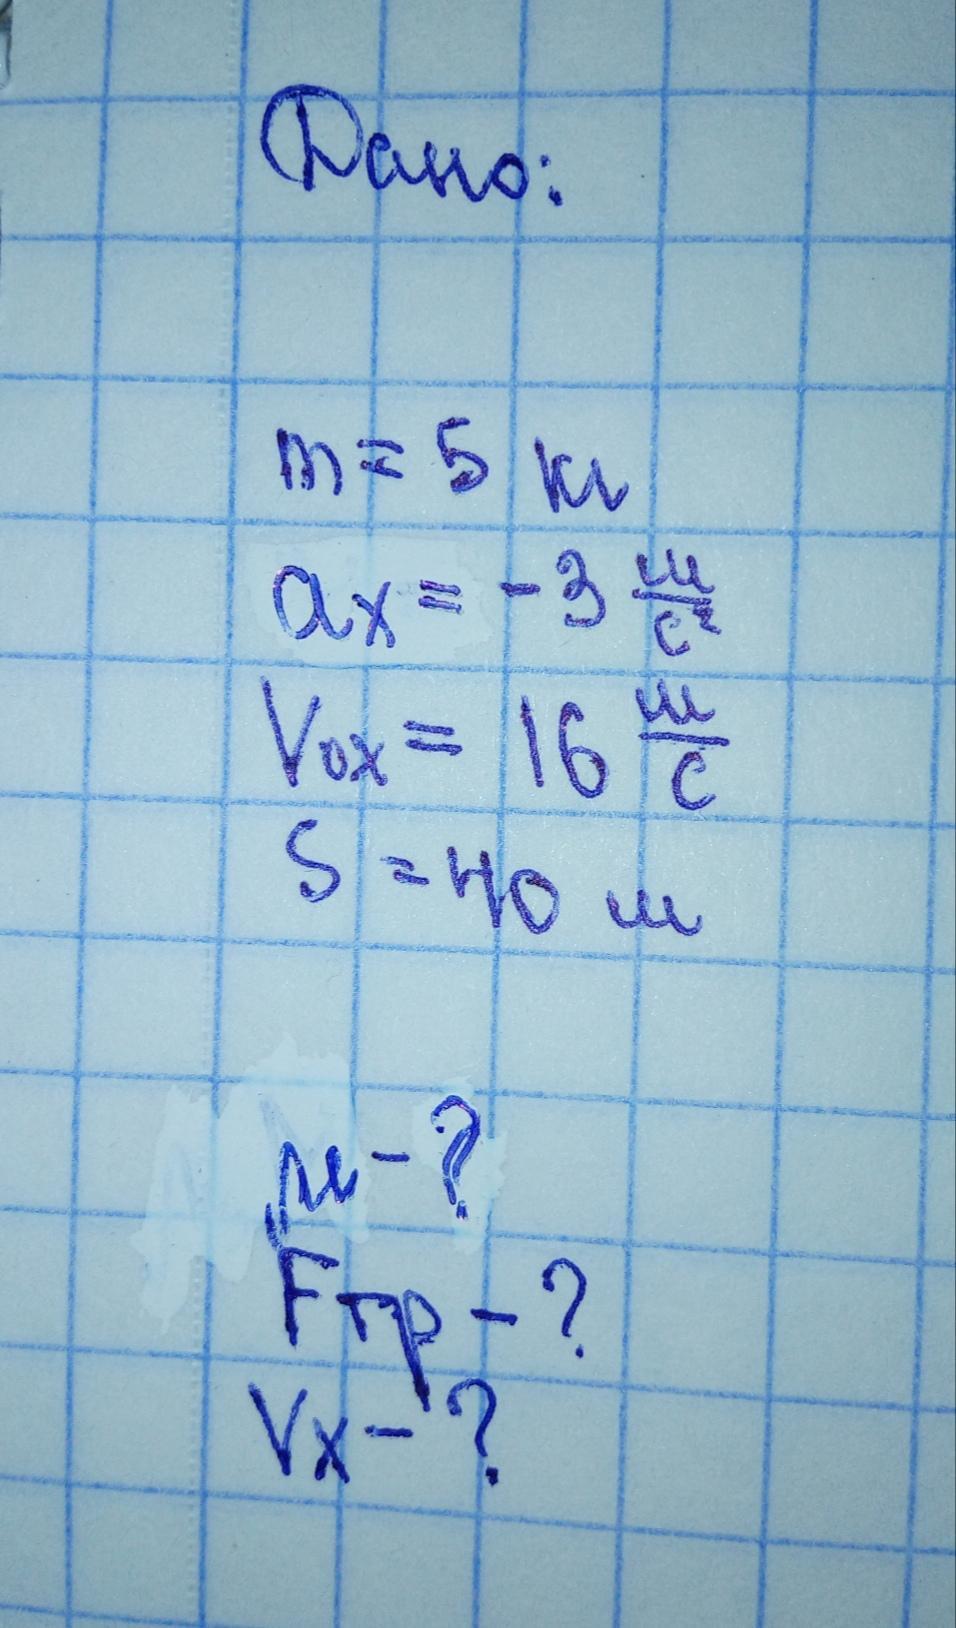 Дано:
m = 5 кг
ax = -3 м/с²
V0x = 16 м/с
S = 40 м
μ - ?
Fтр - ?
Vx - ?